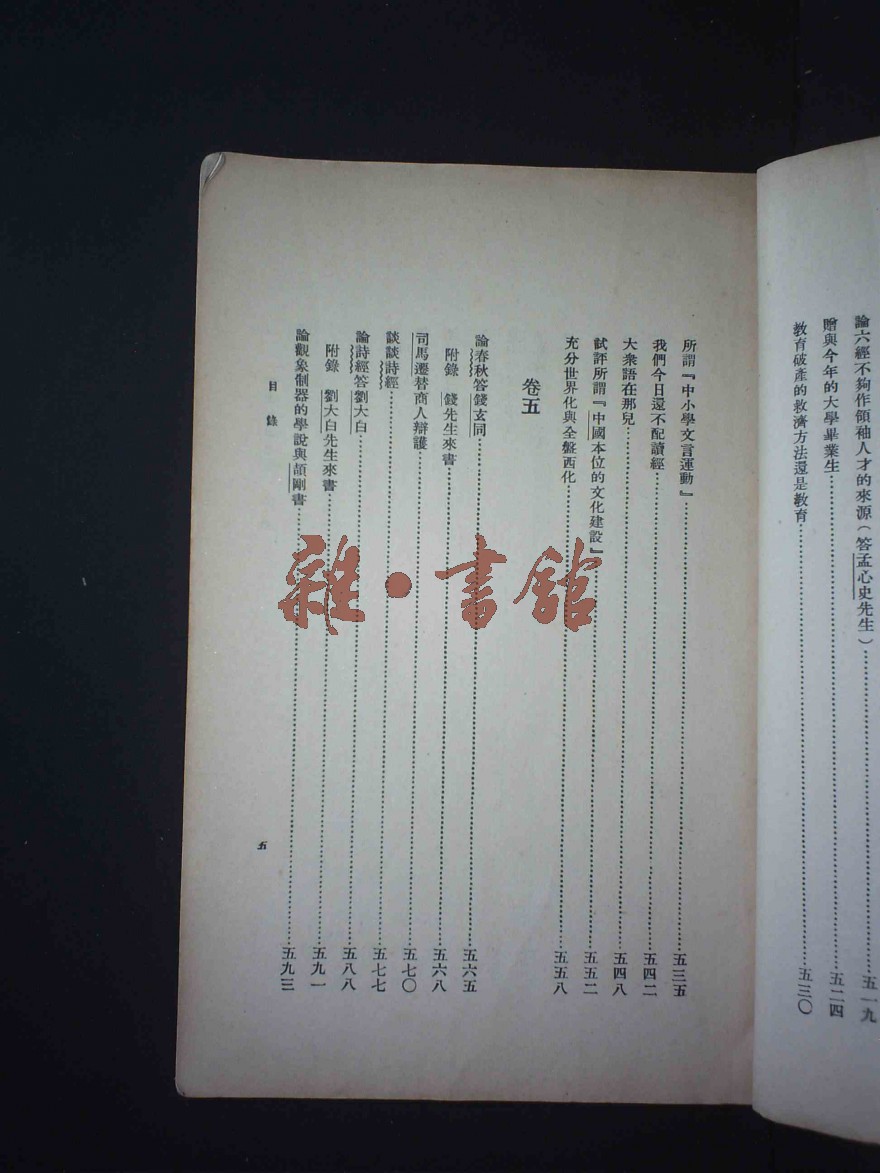 論六經不夠作領袖人才的來源(答孟心史先生)……五一九
贈與今年的大學畢業生……五二四
教育破產的救濟方法還是教育……五三〇
所謂『中小學文言運動』……五三五
我們今日還不配讀經……五四二
大衆語在那兒……五四八
試評所謂『中國本位的文化建設』……五五二
充分世界化與全盤西化……五五八
卷五
論春秋答錢玄同……五六五
附錄 錢先生來書……五六八
司馬遷替商人辯護……五七〇
談談詩經……五七七
論詩經答劉大白……五八八
附錄 劉大白先生來書……五九一
論觀象制器的學說與頡剛書……五九三
目錄
五
雜·書館